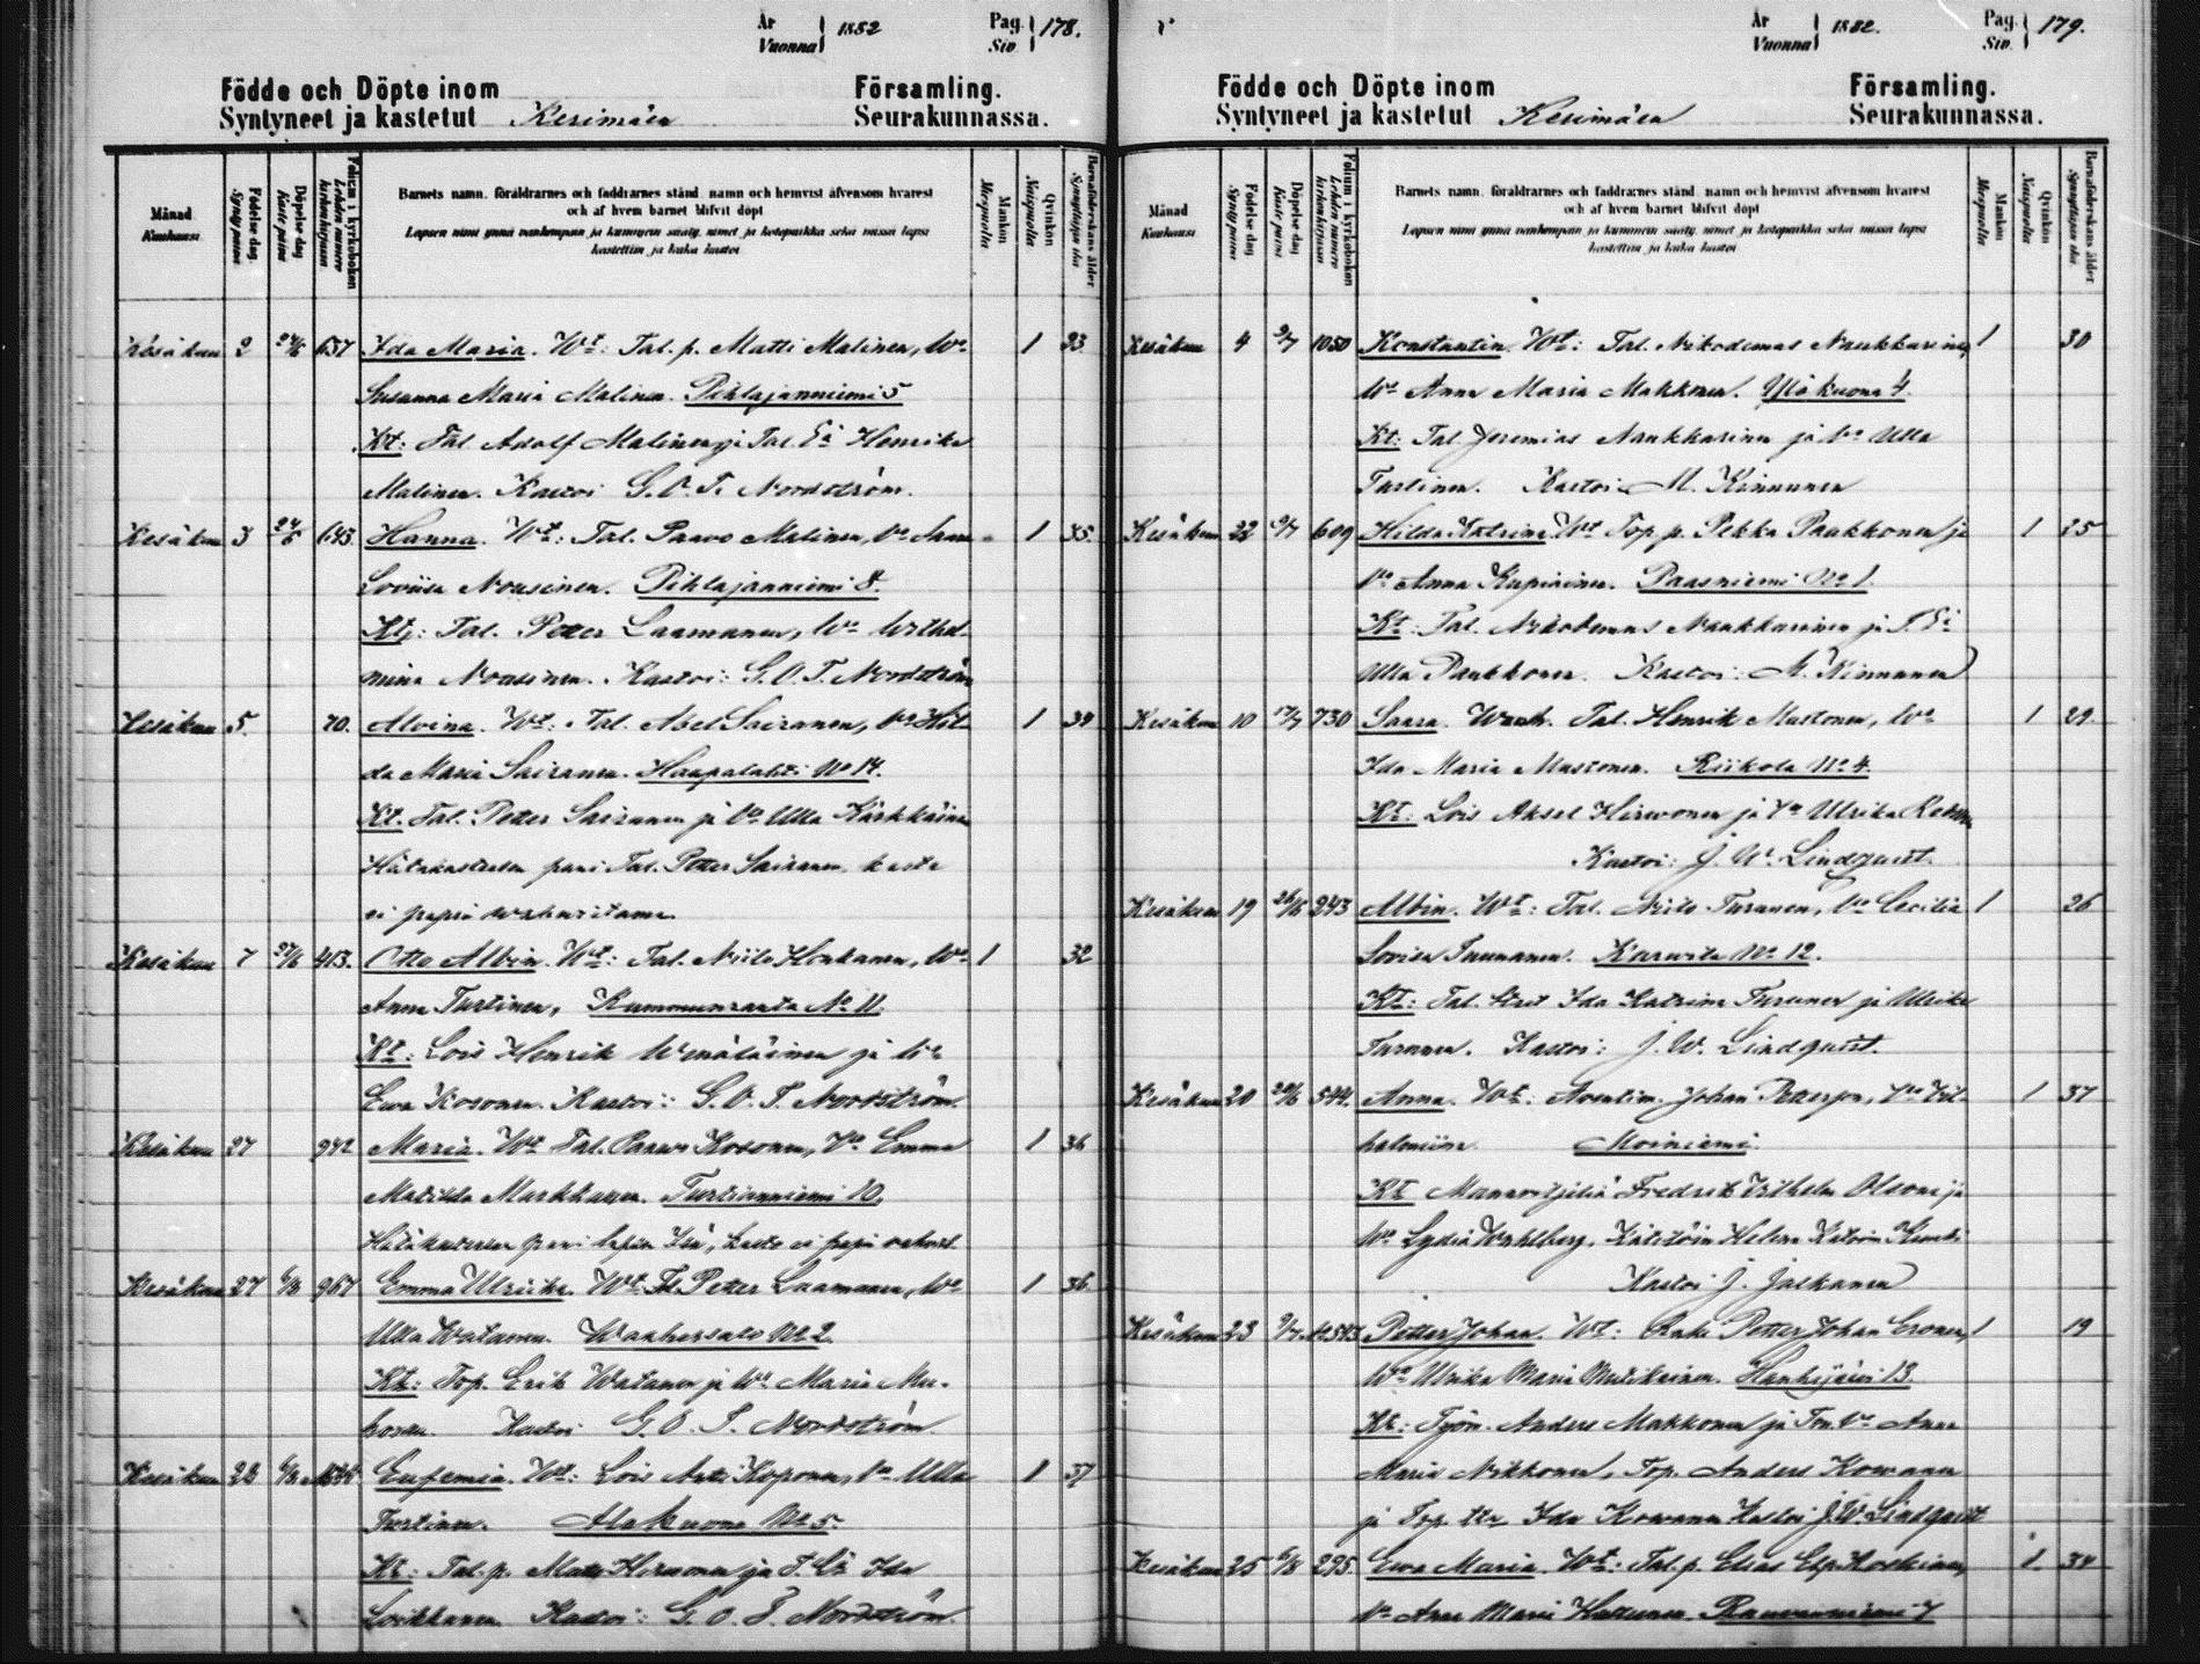 År
Vuonna } 1882
Pag.
Siv. } 178.
Födde och Döpte inom Församling.
Syntyneet ja kastetut Kerimäen Seurakunnassa.
Månad
Kuukausi
Födelse dag
Synty päivä
Döpelse dag
Kaste päivä
Folium i kyrkoboken
Lehden numero kirkonkirjassa
Barnets namn, föräldrarnes och faddrarnes stånd, namn och hemvist äfvensom hvarest
och af hvem barnet blifvit döpt
Lapsen nimi ynnä vanhempain ja kummein sääty, nimet ja kotopaikka sekä missä lapsi
kastettiin ja kuka kastoi
Mankön
Miespuolta
Qvinkön
Naispuolta
Barnaföderskans ålder
Synnyttäjän ikä
Kesäkuu 2 24/6 657 Ida Maria. Wt: Tal. p. Matti Malinen, Wo 1 23
Susanna Maria Malinen. Pihlajanniemi 5
Kt: Tal. Adolf Malinen ja Tal. Henrika
Malinen. Kastoi G. O. T. Nordström.
Kesäkuu 3 24/6 643. Hanna. Wt: Tal. Paavo Malinen, Vo 1 35.
Loviisa Nousinen. Pihlajanniemi 8.
Kt: Tal. Petter Laamanen, Wo Wilhel-
mina Nousinen. Kastoi: G. O. T. Nordström
Kesäkuu 5. 70. Alvina. Wt: Tal. Abel Sairanen, Vo Hil- 1 39
da Maria Sairanen. Haapalahti No 14.
Kt. Tal. Petter Sairanen ja Vo Ulla Kärkkäinen
Hätäkasteen pani Tal. Petter Sairanen, kaste
ei papin wahwistama.
Kesäkuu 7 27/6 413. Otto Albin. Wt: Tal. Niilo Honkanen, Wo 1 32
Anna Turtinen, Kummunranta No 11.
Kt: Lois Henrik Wenäläinen ja
Ewa Kosonen. Kastoi: G. O. T. Nordström.
Kesäkuu 27 942 Maria. Wt Tal. Paawo Kosonen, Vo Emma 1 36
Matilda Markkanen. Turtianniemi 10.
Hätäkasteen pani lapsen Isä, kaste ei papin
Kesäkuu 27 6/8 967 Emma Ulriika. Wt: Petter Laamanen, Wo 1 36.
Ulla Watanen. Wanhersalo No 2.
Kt: Top. Erik Watanen ja Wo Maria Mu-
honen. Kastoi G. O. T. Nordström
Kesäkuu 28 6/8 Eufemia. Wt: Lois Antti Koponen, Vo Ulla 1 37
Turtinen. Alakuona No 5.
Kt: Tal. p. Hirvonen ja Ida
Loikkanen. Kastoi: G. O. T. Nordström
År
Vuonna } 1882.
Pag.
Siv. } 179.
Födde och Döpte inom Församling.
Syntyneet ja kastetut Kerimäen Seurakunnassa.
Månad
Kuukausi
Födelse dag
Synty päivä
Döpelse dag
Kaste päivä
Folium i kyrkoboken
Lehden numero kirkonkirjassa
Barnets namn, föräldrarnes och faddrarnes stånd, namn och hemvist äfvensom hvarest
och af hvem barnet blifvit döpt
Lapsen nimi ynnä vanhempain ja kummein sääty, nimet ja kotopaikka sekä missä lapsi
kastettiin ja kuka kastoi
Mankön
Miespuolta
Qvinkön
Naispuolta
Barnaföderskans ålder
Synnyttäjän ikä
Kesäkuu 4 9/7 1050 Konstantin. Wt: Tal. Nikodemus Naukkarinen, 1 30
Wo Anna Maria Makkonen. Yläkuona 4.
Kt: Tal. Jeremias Naukkarinen ja Vo Ulla
Turtinen. Kastoi M. Kinnunen
Kesäkuu 22 9/7 609 Hilda Katrina. Wt Top. p. Pekka Paukkonen ja 1 25
Vo Anna Kupiainen. Paasniemi No 1.
Kt: Tal. Nikodemus Naukkarinen ja
Ulla Paukkonen. Kastoi: M. Kinnunen
Kesäkuu 10 17/7 730 Saara. Wanh. Tal. Henrik Mustonen, Wo 1 29.
Ida Maria Mustonen. Riikola No 4.
Kt: Lois Aksel Hirwonen ja Ulrika
Kastoi: J. W. Lindquist.
Kesäkuu 19 26/6 243 Albin. Wt: Tal. Niilo Turunen, Vo Cecilia 1 26
Lovisa Tuunanen. Karwila No 12.
Kt: Tal. Ida Katrina Turunen ja Ulrika
Turunen. Kastoi: J. W. Lindquist.
Kesäkuu 20 544. Anna. Wt: Johan Petterson, Vil- 1 37
helmiina. Moiniemi.
Kt Fredrik Wilhelm Olsoni ja
Wo Lydia Wahlberg, Helena
Kastoi J. Jalkanen
Kesäkuu 23 9/7 Petter Johan. Wt: Petter Johan Eronen, 1 19
Wo Ulrika Maria Mutikainen. Hanhijärvi 13.
Kt: Työm. Anders Makkonen ja Anna
Maria Nikkonen, Top. Anders Kowanen
ja Top. Ida Kowanen Kastoi J. W. Lindquist
Kesäkuu 25 6/8 295. Ewa Maria. Wt: Tal. p. Elias Koskinen, 1 34
Vo Anna Maria Rauvanniemi 7